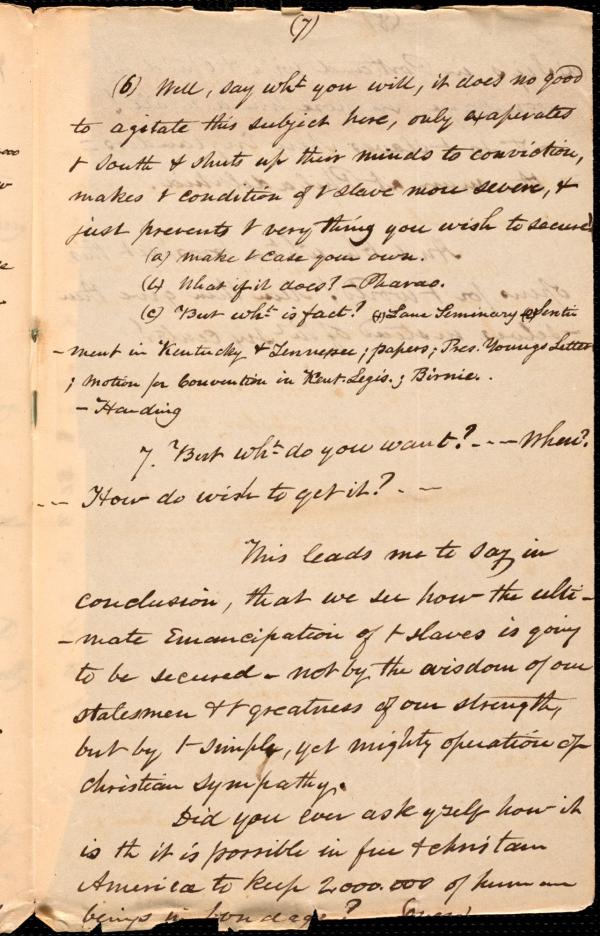 (7)
(6) Well, say wht you will, it does no good
to agitate this subject here, only exaperates
t South & shuts up their minds to conviction,
makes t condition of t slave more severe, &
just prevents t very thing you wish to secure.
(a) make t case your own.
(b) What if it does? - Pharao.
(c) But wht is fact? (1) Lane Seminary (2) Senti
- ment in Kentucky & Tennessee; papers; Pres. Youngs Letter
; motion for Convention in Kent. Legis.; Birnie.
- Harding
7. But wht do you want? - - - When?
- - How do wish to get it? - -
This leads me to say in
conclusion, that we see how the ulti-
-mate Emancipation of t slaves is going
to be secured - not by the wisdom of our
statesmen & t greatness of our strength,
but by t simple, yet mighty operation of
christian sympathy.
Did you ever ask yself how it
is th it is possible in free & christain
America to keep 2,000.000 of human
beings in bondage?